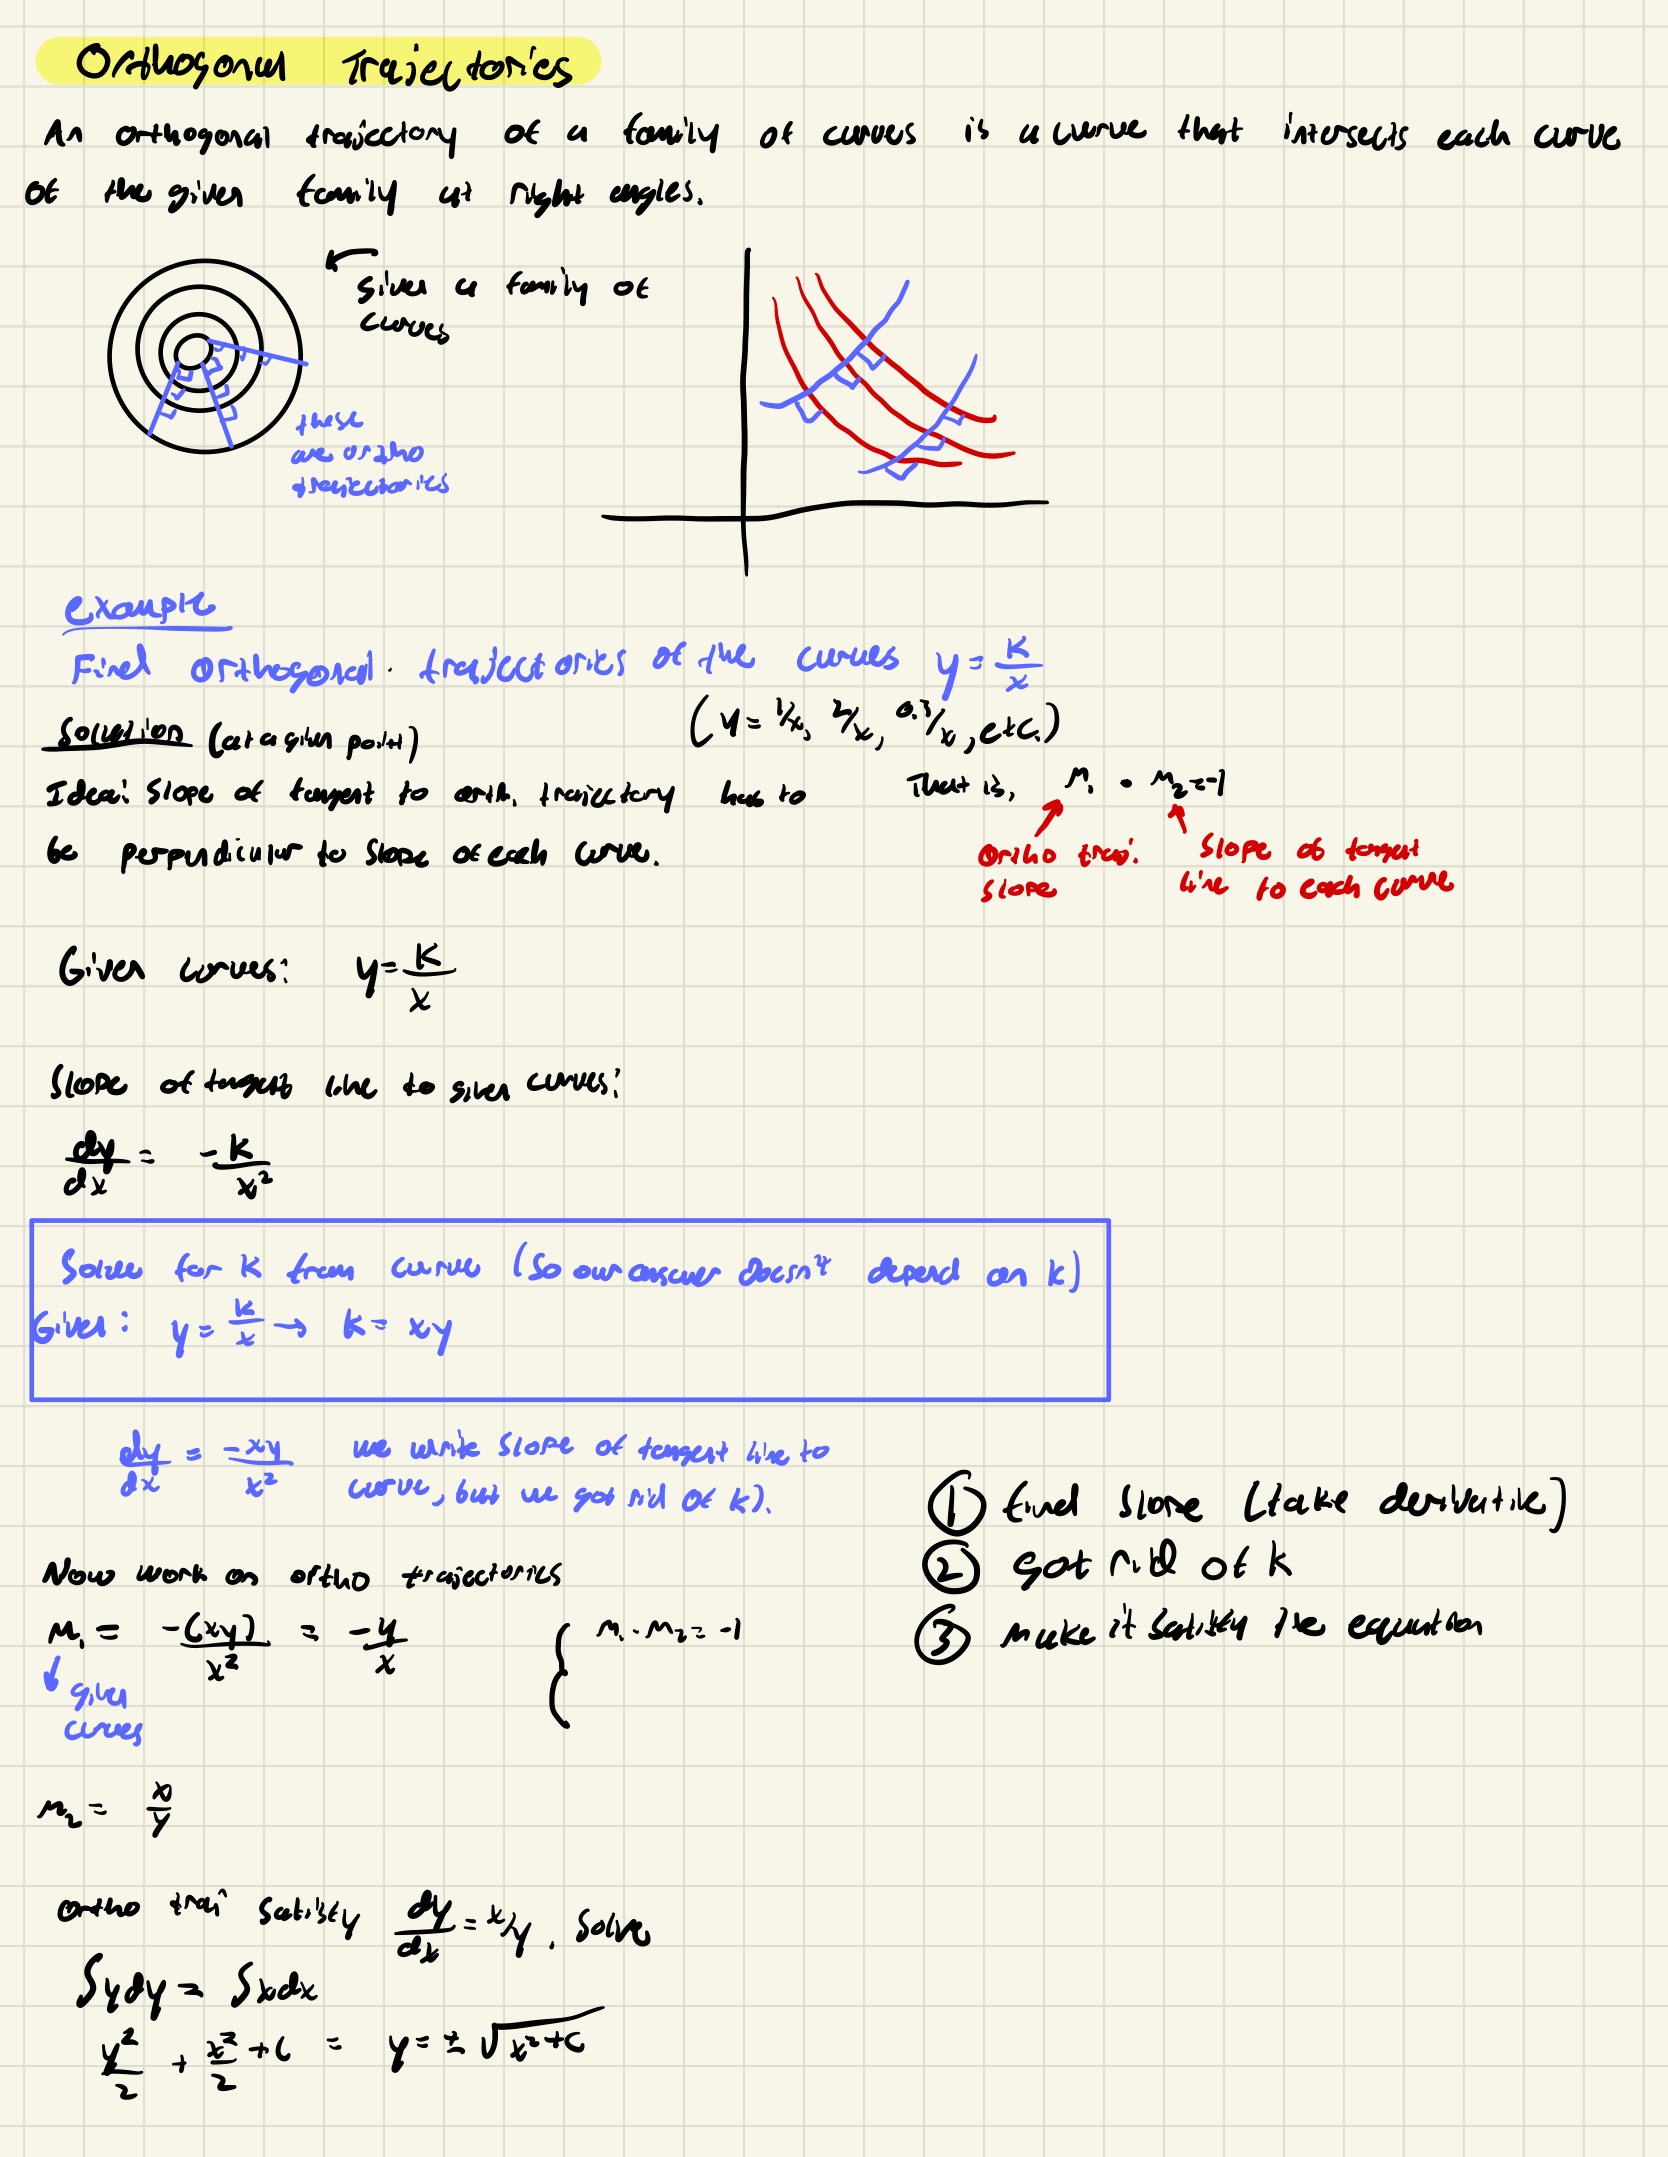 Orthogonal Trajectories
An orthogonal trajectory of a family of curves is a curve that intersects each curve
of the given family at right angles.
given a family of
curves
these
are ortho
trajectories
example
Find orthogonal trajectories of the curves y = K/x
(y = 1/x, 2/x, 0.3/x, etc.)
Solution (at a given point)
Idea: Slope of tangent to orth. trajectory has to
be perpendicular to slope of each curve.
That is, m₁ • m₂ = -1
Ortho traj. slope
Slope of tangent
line to each curve
Given curves: y = K/x
Slope of tangent line to given curves:
dy/dx = -K/x²
Solve for K from curve (so our answer doesn't depend on K)
Given: y = K/x → K = xy
dy/dx = -xy/x² we write slope of tangent line to
curve, but we got rid of K).
① find slope (take derivative)
② got rid of K
③ make it satisfy the equation
Now work on ortho trajectories
m₁ = -(xy)/x² = -y/x { m₁ · m₂ = -1
given
curves
m₂ = x/y
ortho traj satisfy dy/dx = x/y. Solve
∫ydy = ∫xdx
y²/2 + x²/2 + C = y = ± √x²+C